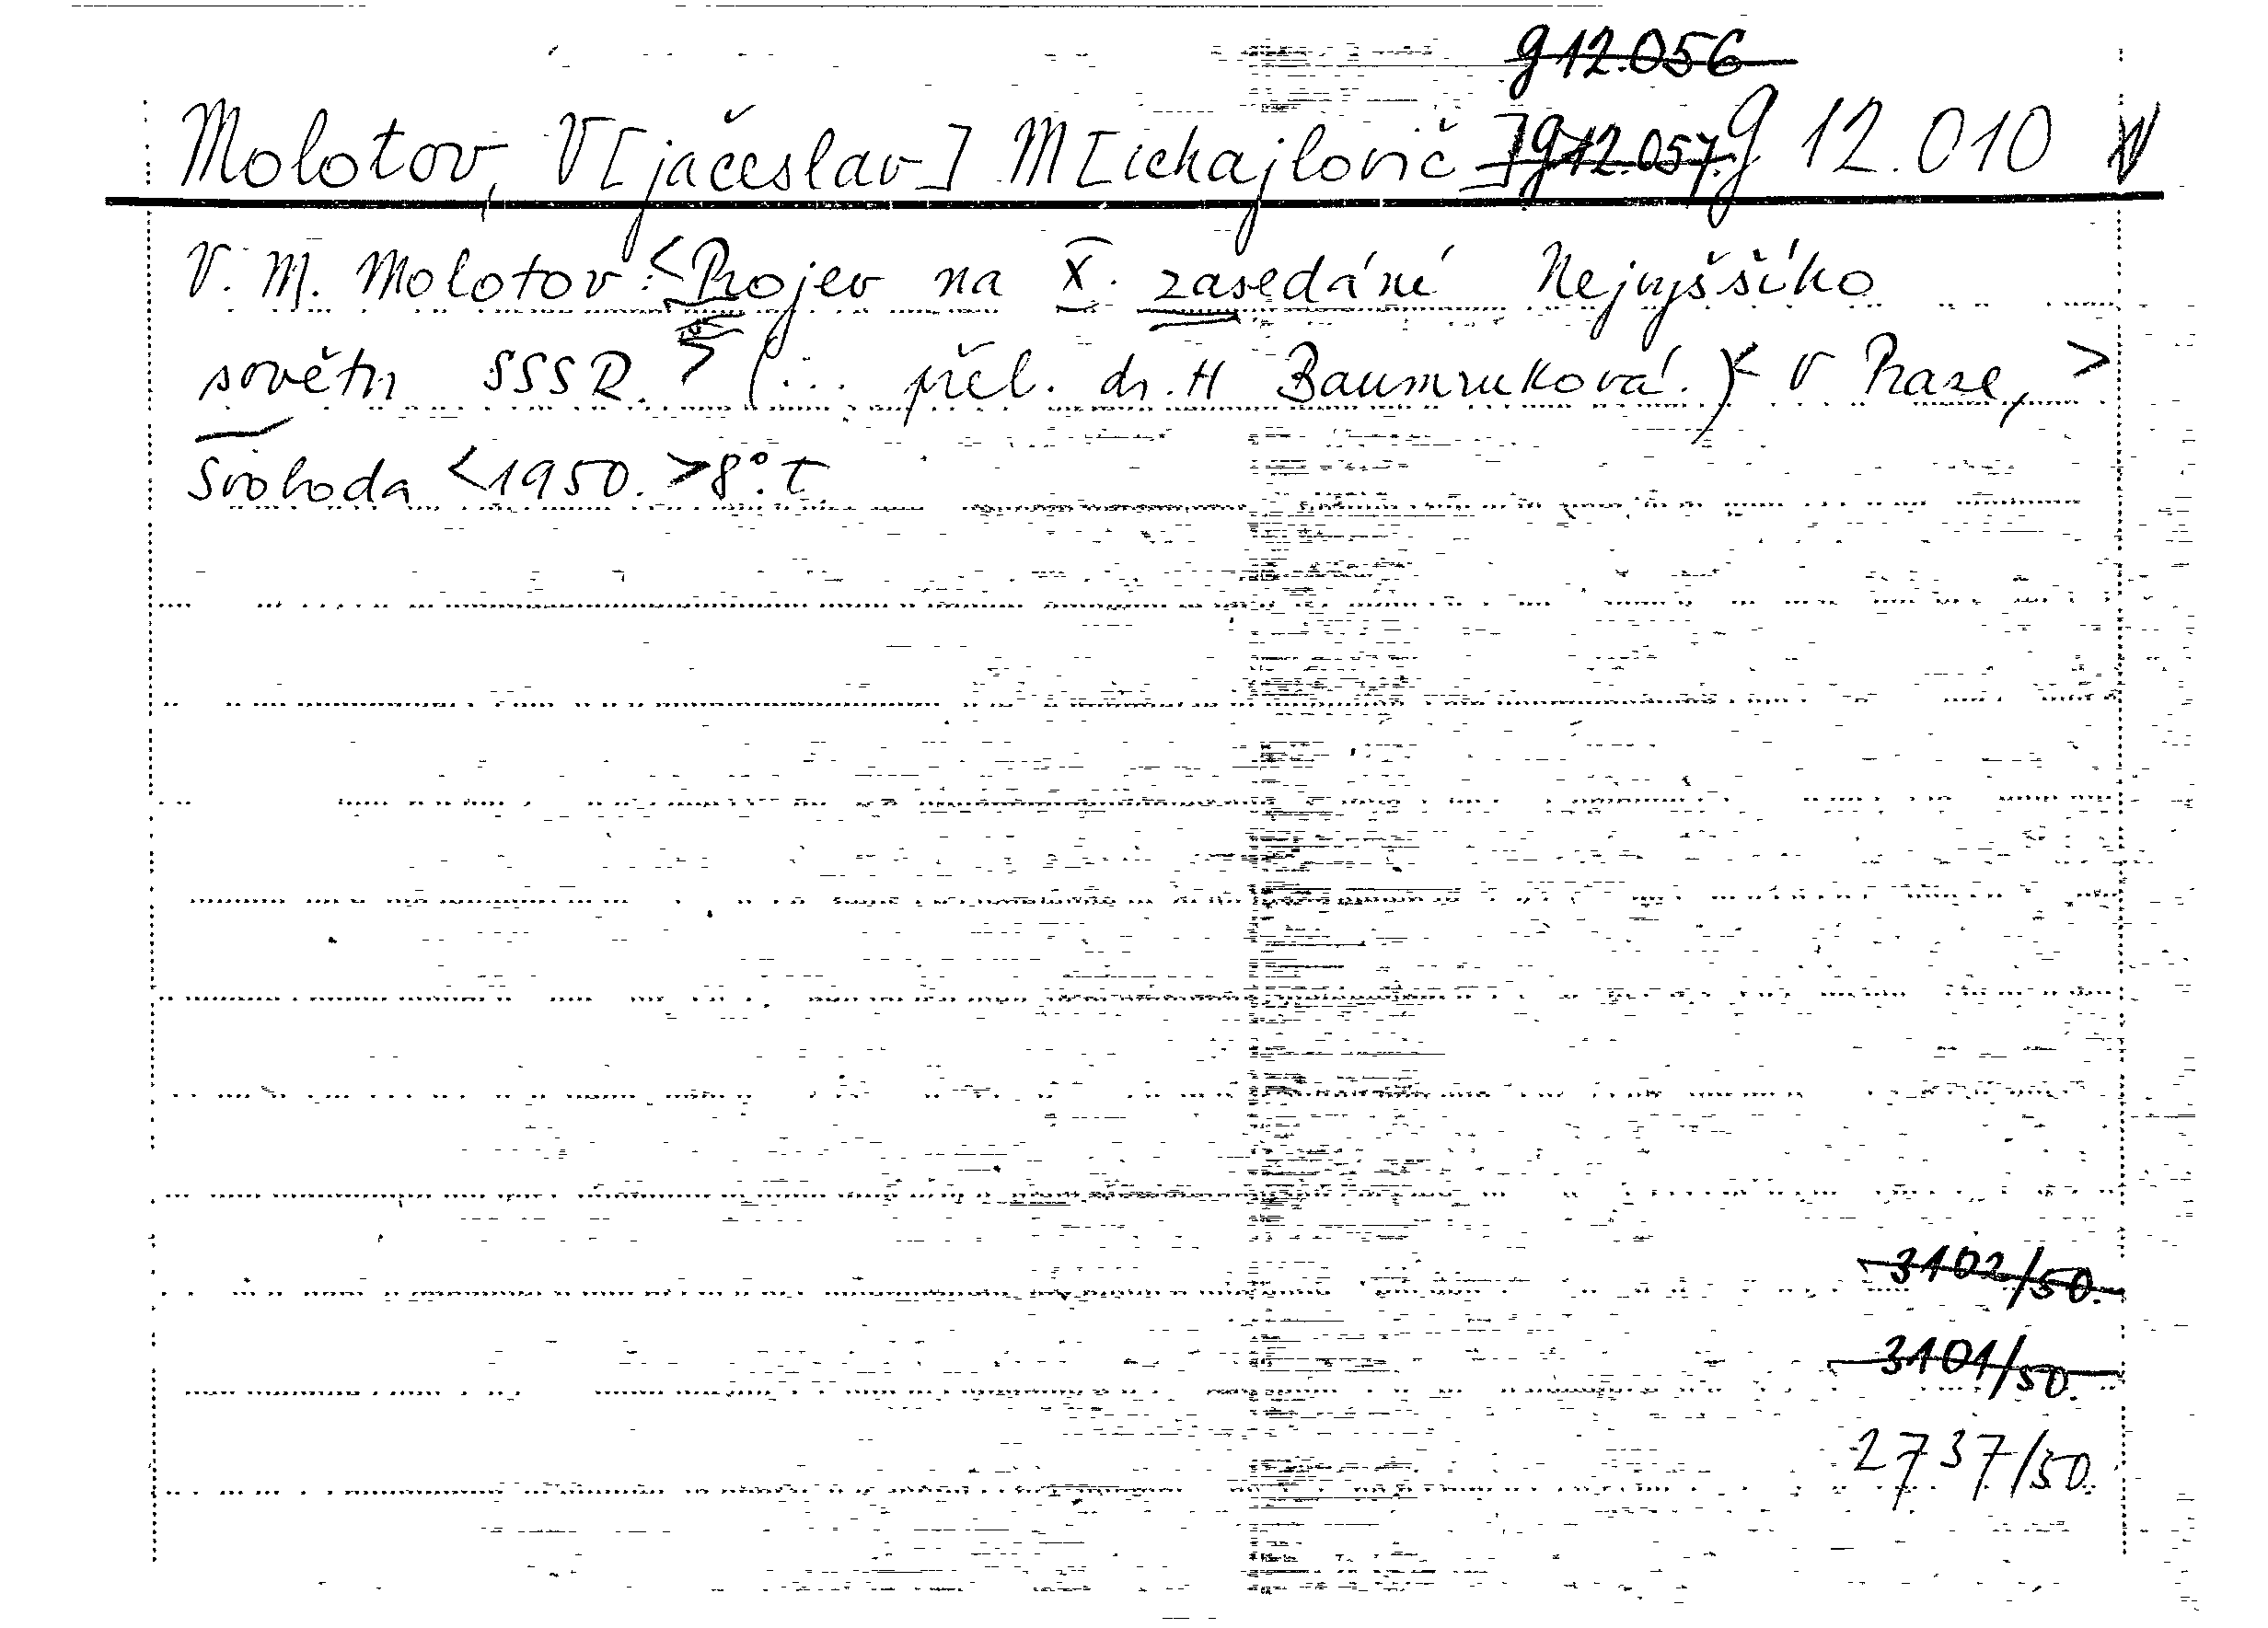 g 12.056
Molotov, V[jačeslav] M[ichajlovič] g 12.057. g 12.010
V. M. Molotov: <Projev na X. zasedání Nejvyššího
sovětu SSSR.> (... přel. dr. H Baumruková.) < V Praze, >
Svoboda <1950.> 8°. t.
3102/50.
3101/50.
2737/50.